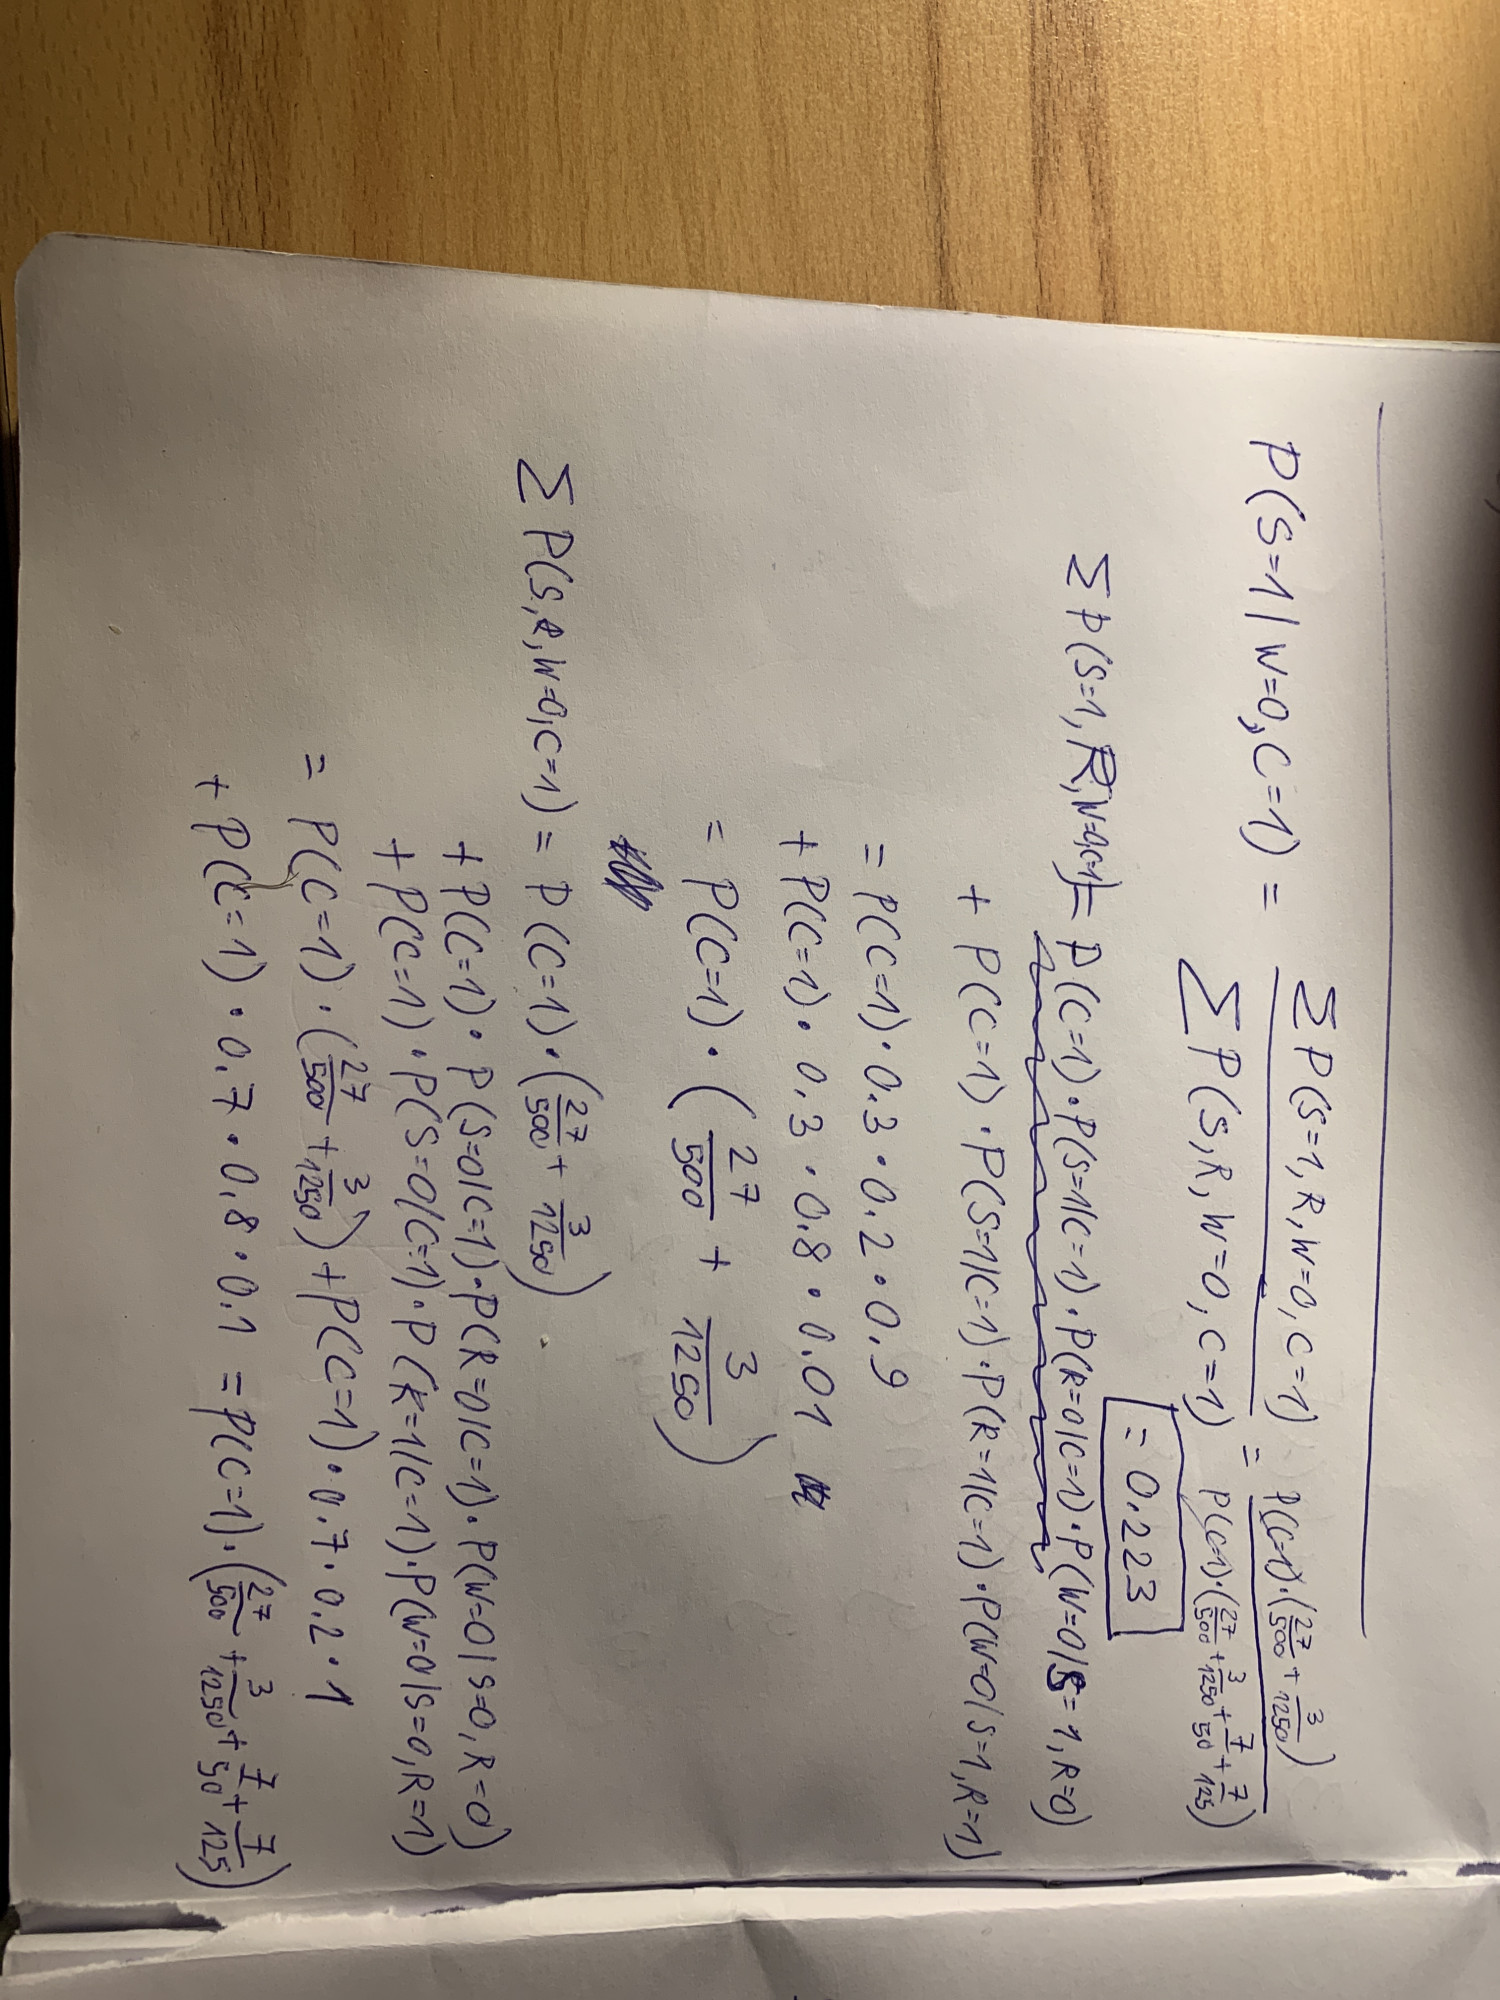 P(S=1|W=0,C=1) = ΣP(S=1,R,W=0,C=1) / ΣP(S,R,W=0,C=1) = P(C=1)·(27/500 + 3/1250) / P(C=1)·(27/500 + 3/1250 + 7/50 + 7/125)
= 0.223
ΣP(S=1,R,W=0,C=1) = P(C=1)·P(S=1|C=1)·P(R=0|C=1)·P(W=0|S=1,R=0)
+ P(C=1)·P(S=1|C=1)·P(R=1|C=1)·P(W=0|S=1,R=1)
= P(C=1)·0.3·0.2·0.9
+ P(C=1)·0.3·0.8·0.01
= P(C=1)·(27/500 + 3/1250)
ΣP(S,R,W=0,C=1) = P(C=1)·(27/500 + 3/1250)
+ P(C=1)·P(S=0|C=1)·P(R=0|C=1)·P(W=0|S=0,R=0)
+ P(C=1)·P(S=0|C=1)·P(R=1|C=1)·P(W=0|S=0,R=1)
= P(C=1)·(27/500 + 3/1250) + P(C=1)·0.7·0.2·1
+ P(C=1)·0.7·0.8·0.1 = P(C=1)·(27/500 + 3/1250 + 7/50 + 7/125)